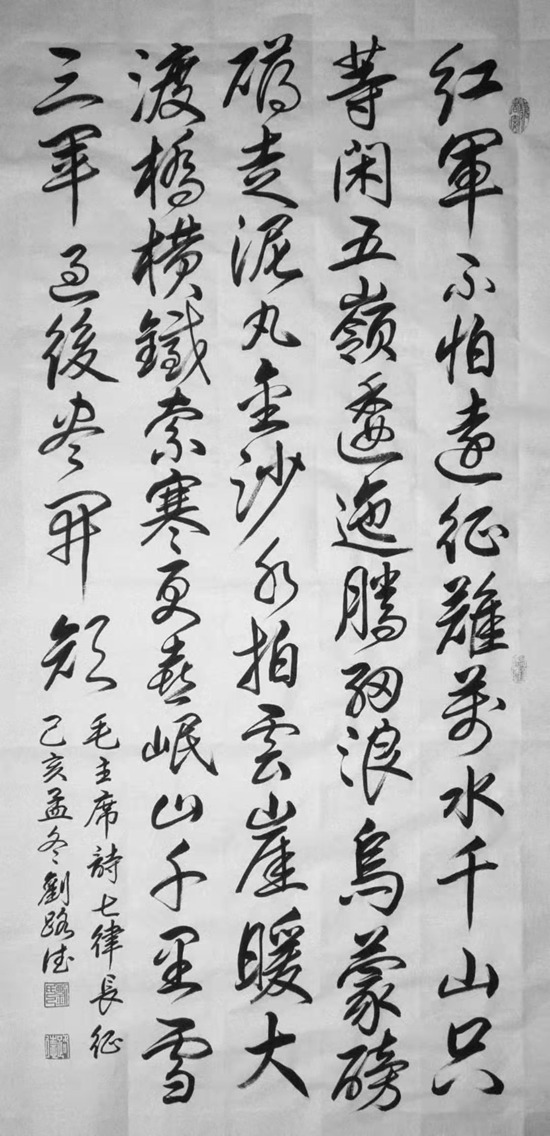 紅軍不怕遠征難萬水千山只
等閑五嶺逶迤騰細浪烏蒙磅
礴走泥丸金沙水拍雲崖暖大
渡橋橫鐵索寒更喜岷山千里雪
三軍過後尽開顏
毛主席詩七律長征
己亥孟冬劉路德